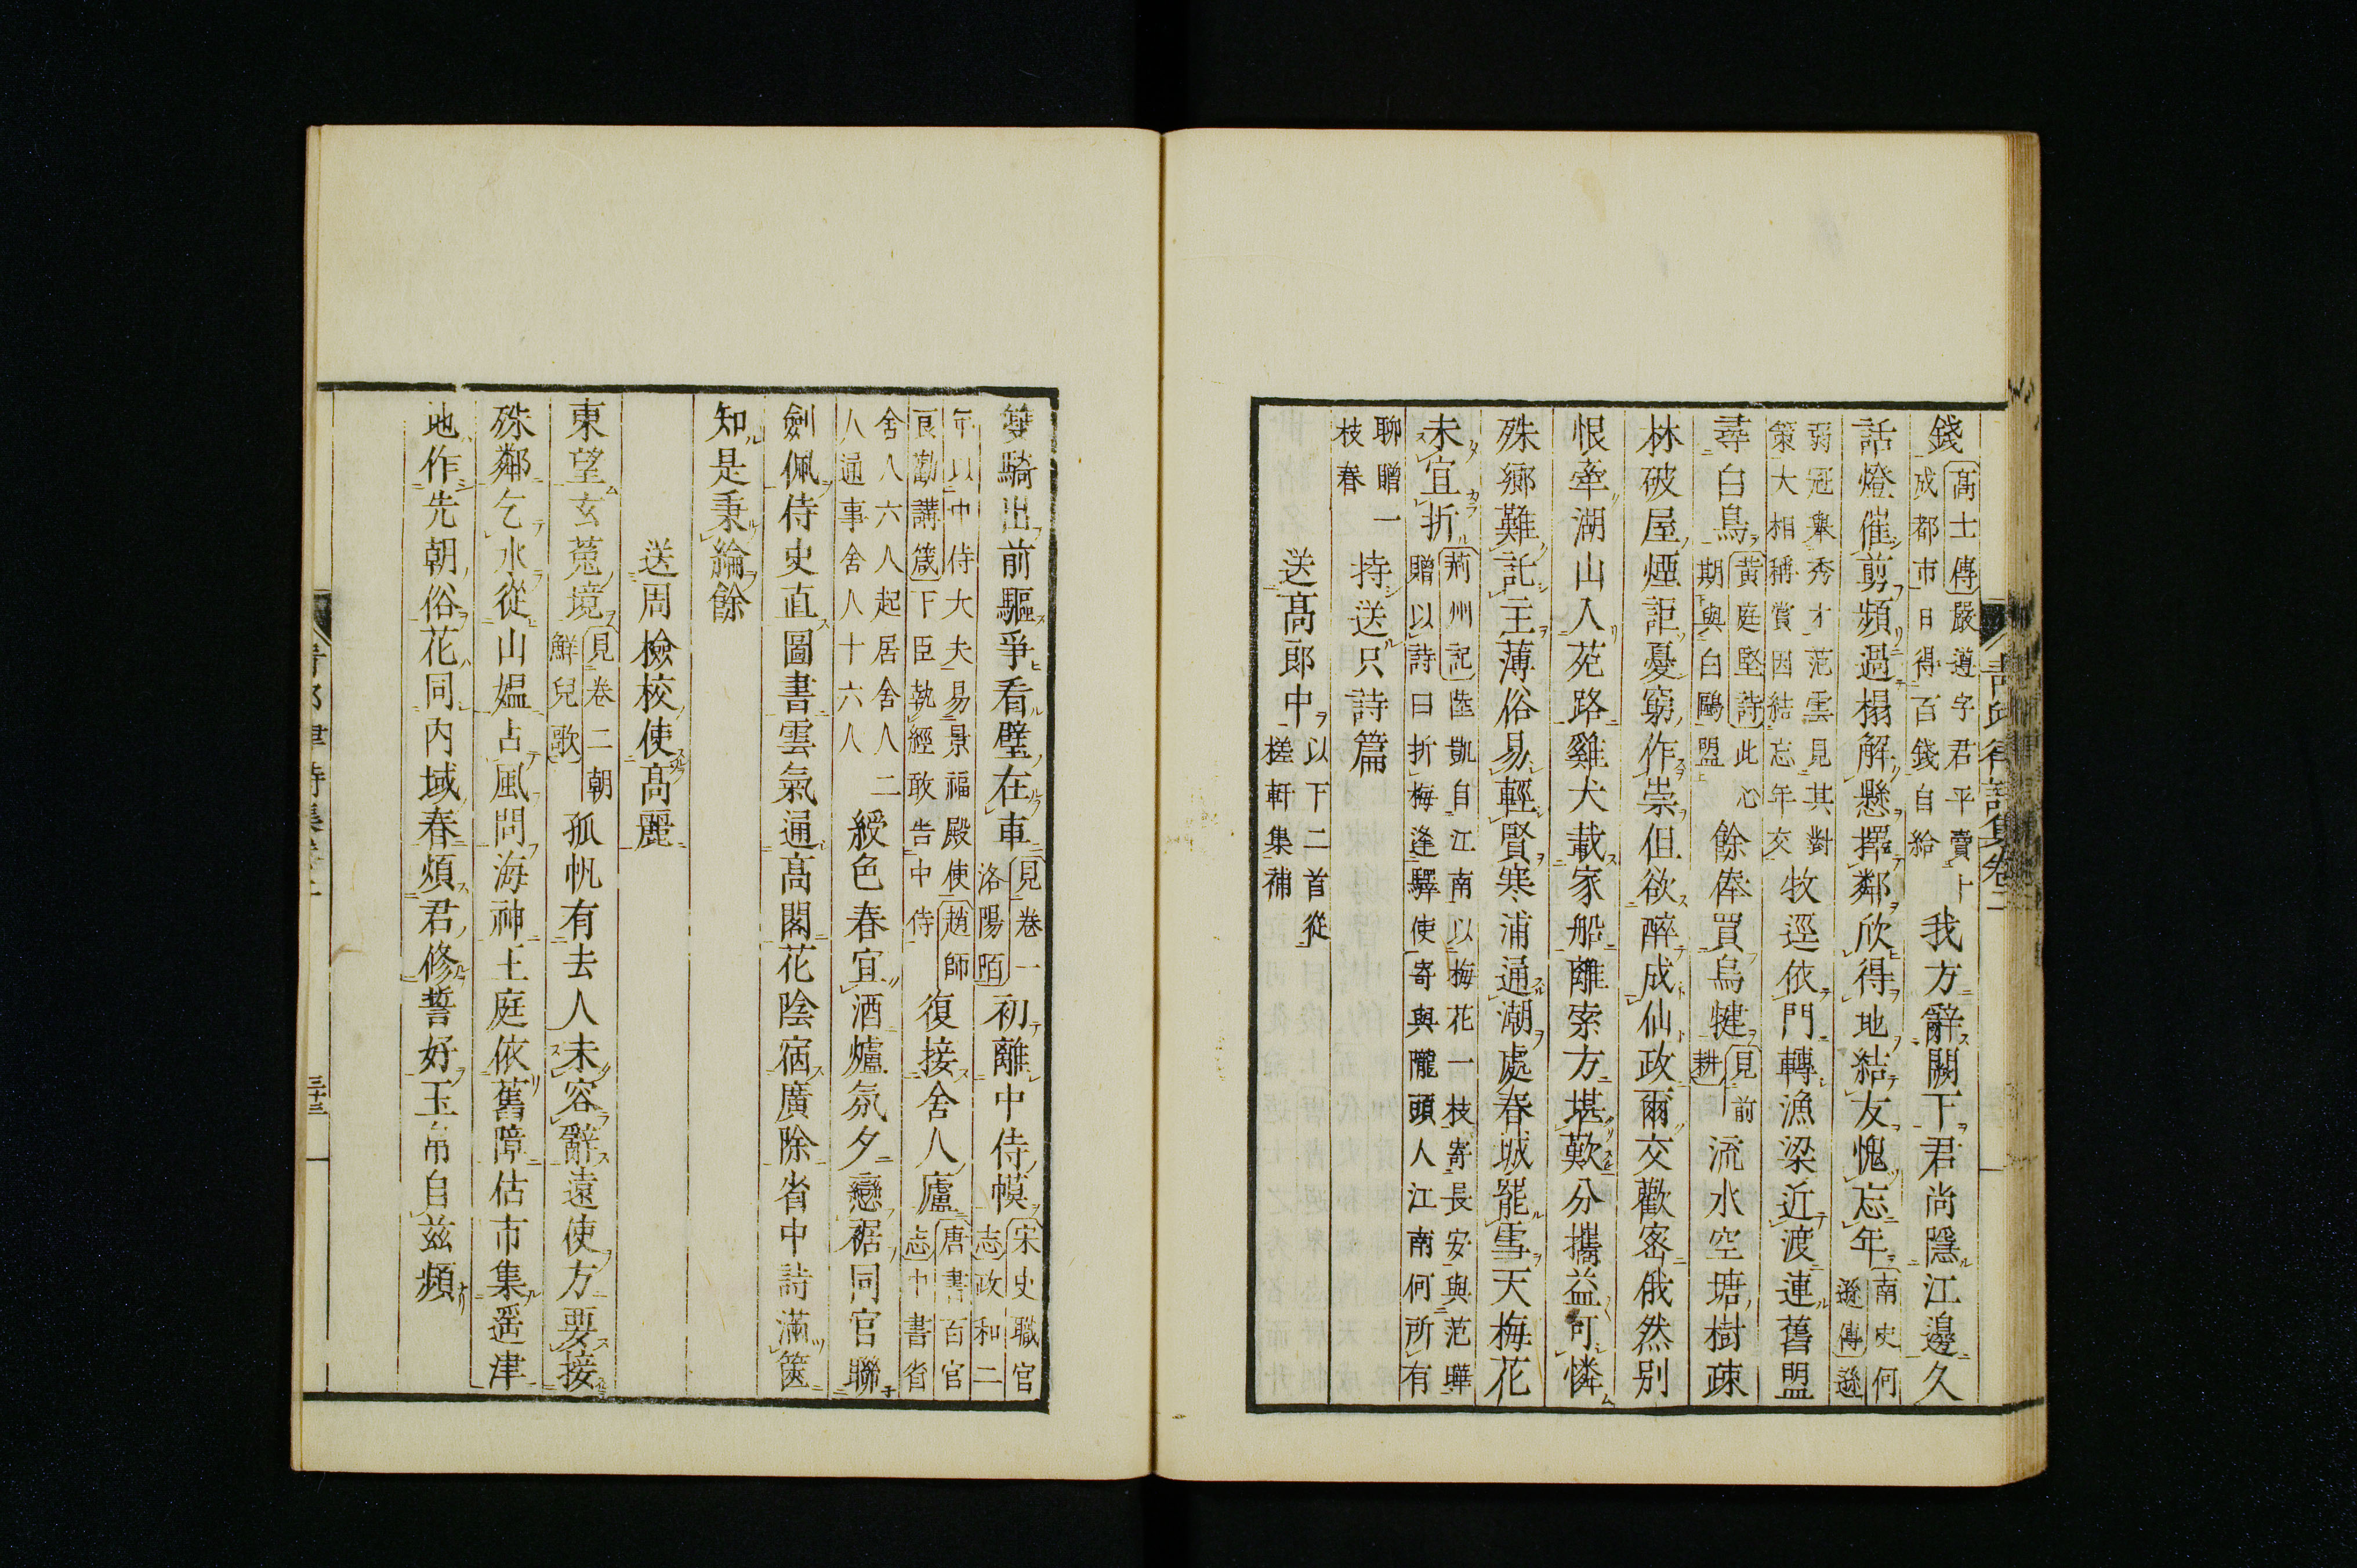 錢高士傳嚴遵字君平賣卜成都市日得百錢自給我方辭闕下君尚隱江邊久
話燈催剪頻過榻解懸擇鄰欣得地結友愧忘年南史何遜傳遜
弱冠舉秀才范雲見其對策大相稱賞因結忘年交牧逕依門轉漁梁近渡連舊盟
尋白鳥黃庭堅詩此心期與白鷗盟餘俸買烏犍見前耕流水空塘樹疎
林破屋煙詎憂窮作祟但欲醉成仙政爾交歡密俄然別
恨牽湖山入苑路雞犬載家船離索方堪歎分攜益可憐
殊鄉難託主薄俗易輕賢寒浦通潮處春城罷雪天梅花
未宜折荊州記陸凱自江南以梅花一枝寄長安與范曄贈以詩曰折梅逢驛使寄與隴頭人江南何所有
聊贈一枝春持送只詩篇
送高郎中以下二首從槎軒集補
青邱律詩集卷二
雙騎出前驅爭看璧在車見卷一洛陽陌初離中侍幙宋史職官志政和二
年以中侍大夫易景福殿使趙師㒷勸講箴下臣執經敢告中侍復接舍人廬唐書百官志中書省
舍人六人起居舍人二人通事舍人十六人綬色春宜酒爐氛夕戀裾同官聯
劍佩侍史直圖書雲氣通高閣花陰宿廣除省中詩滿篋
知是秉綸餘
送周檢校使高麗
東望玄菟境見卷二朝鮮兒歌孤帆有去人未容辭遠使方要接
殊鄰乞水從山媼占風問海神王庭依舊障估市集遥津
地作先朝俗花同内域春煩君修誓好玉帛自兹頻
三十三